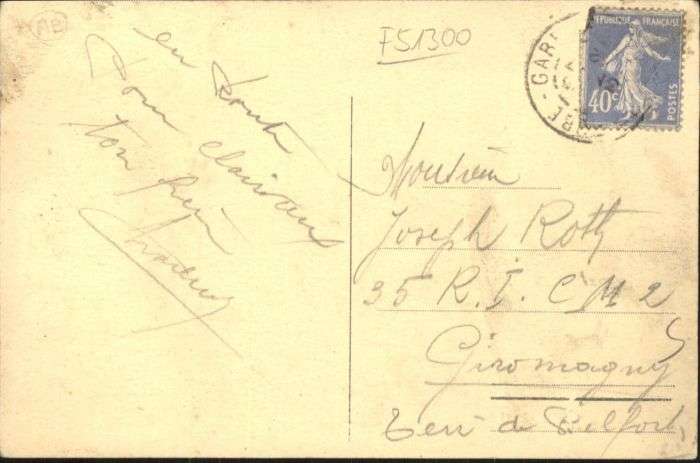 AB
F51300
en route
pour Clairvaux
ton frère
RÉPUBLIQUE FRANÇAISE
40c
POSTES
GARE
Monsieur
Joseph Roth
35 R. I. C M 2
Giromagny
Terr de Belfort